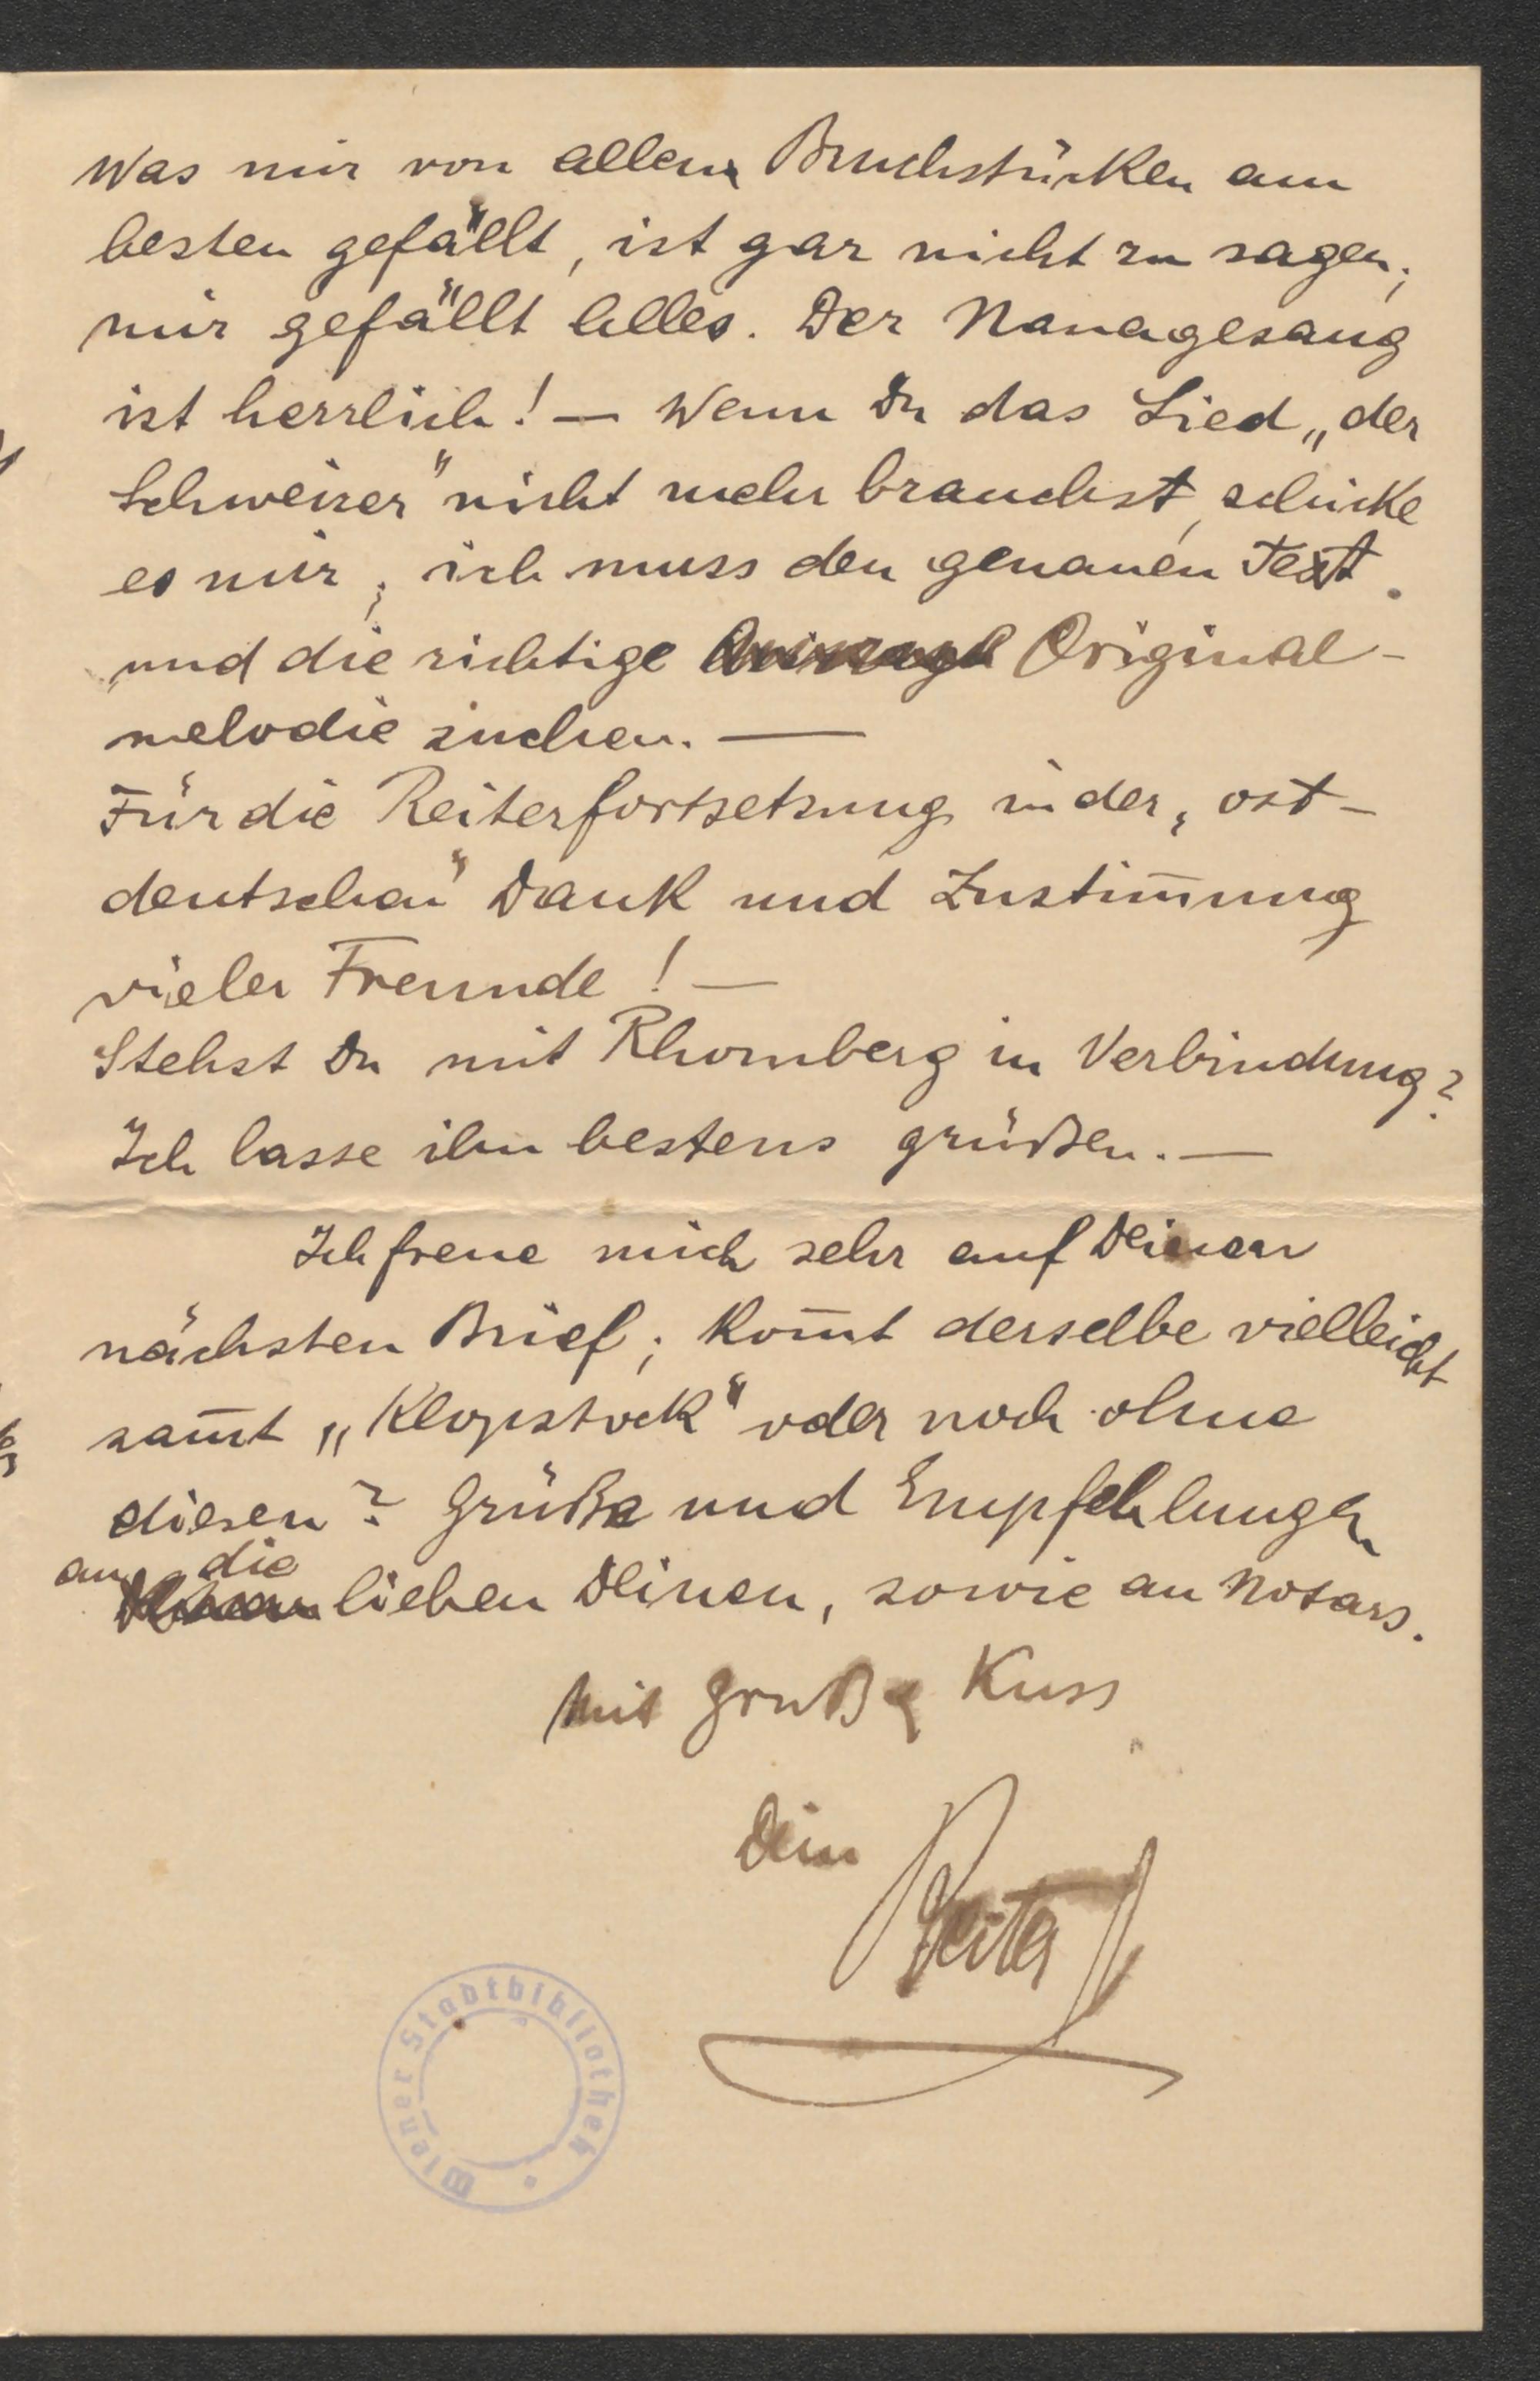 Was mir von allen Bruchstücken am
besten gefällt, ist gar nicht zu sagen;
mir gefällt Alles. Der Nanagesang
ist herrlich! — Wenn Du das Lied „der
Schweizer" nicht mehr brauchst, schicke
es mir; ich muss den genauen Text
und die richtige Original-
melodie suchen. —
Für die Reiterfortsetzung in der „ost-
deutschen" Dank und Zustim̄ung
vieler Freunde! —
Stehst Du mit Rhomberg in Verbindung?
Ich lasse ihn bestens grüßen. —
Ich freue mich sehr auf Deinen
nächsten Brief; kom̄t derselbe vielleicht
sam̄t „Klopstock" oder noch ohne
diesen? Grüße und Empfehlungen
an die lieben Deinen, sowie an Notars.
Mit Gruß & Kuss
Dein
Reiter
Wiener Stadtbibliothek